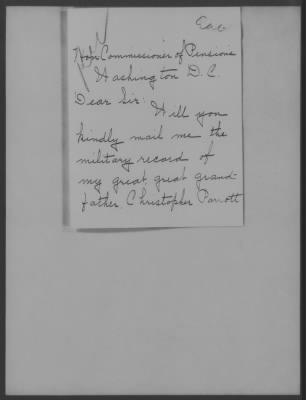 Hon Commissioner of Pensions
Washington D.C.
Dear Sir: Will you
kindly mail me the
military record of
my great, great grand-
father, Christopher Parrott